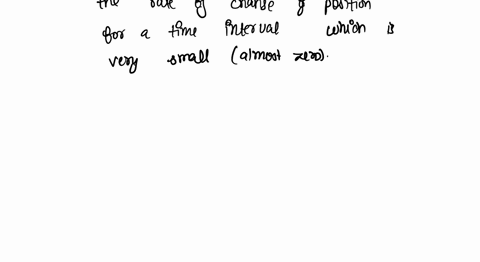 the rate of change of position
for a time interval which is
very small (almost zero).